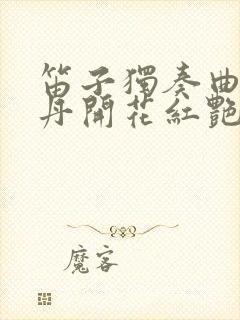 笛子獨奏曲
丹開花紅艷
魔客